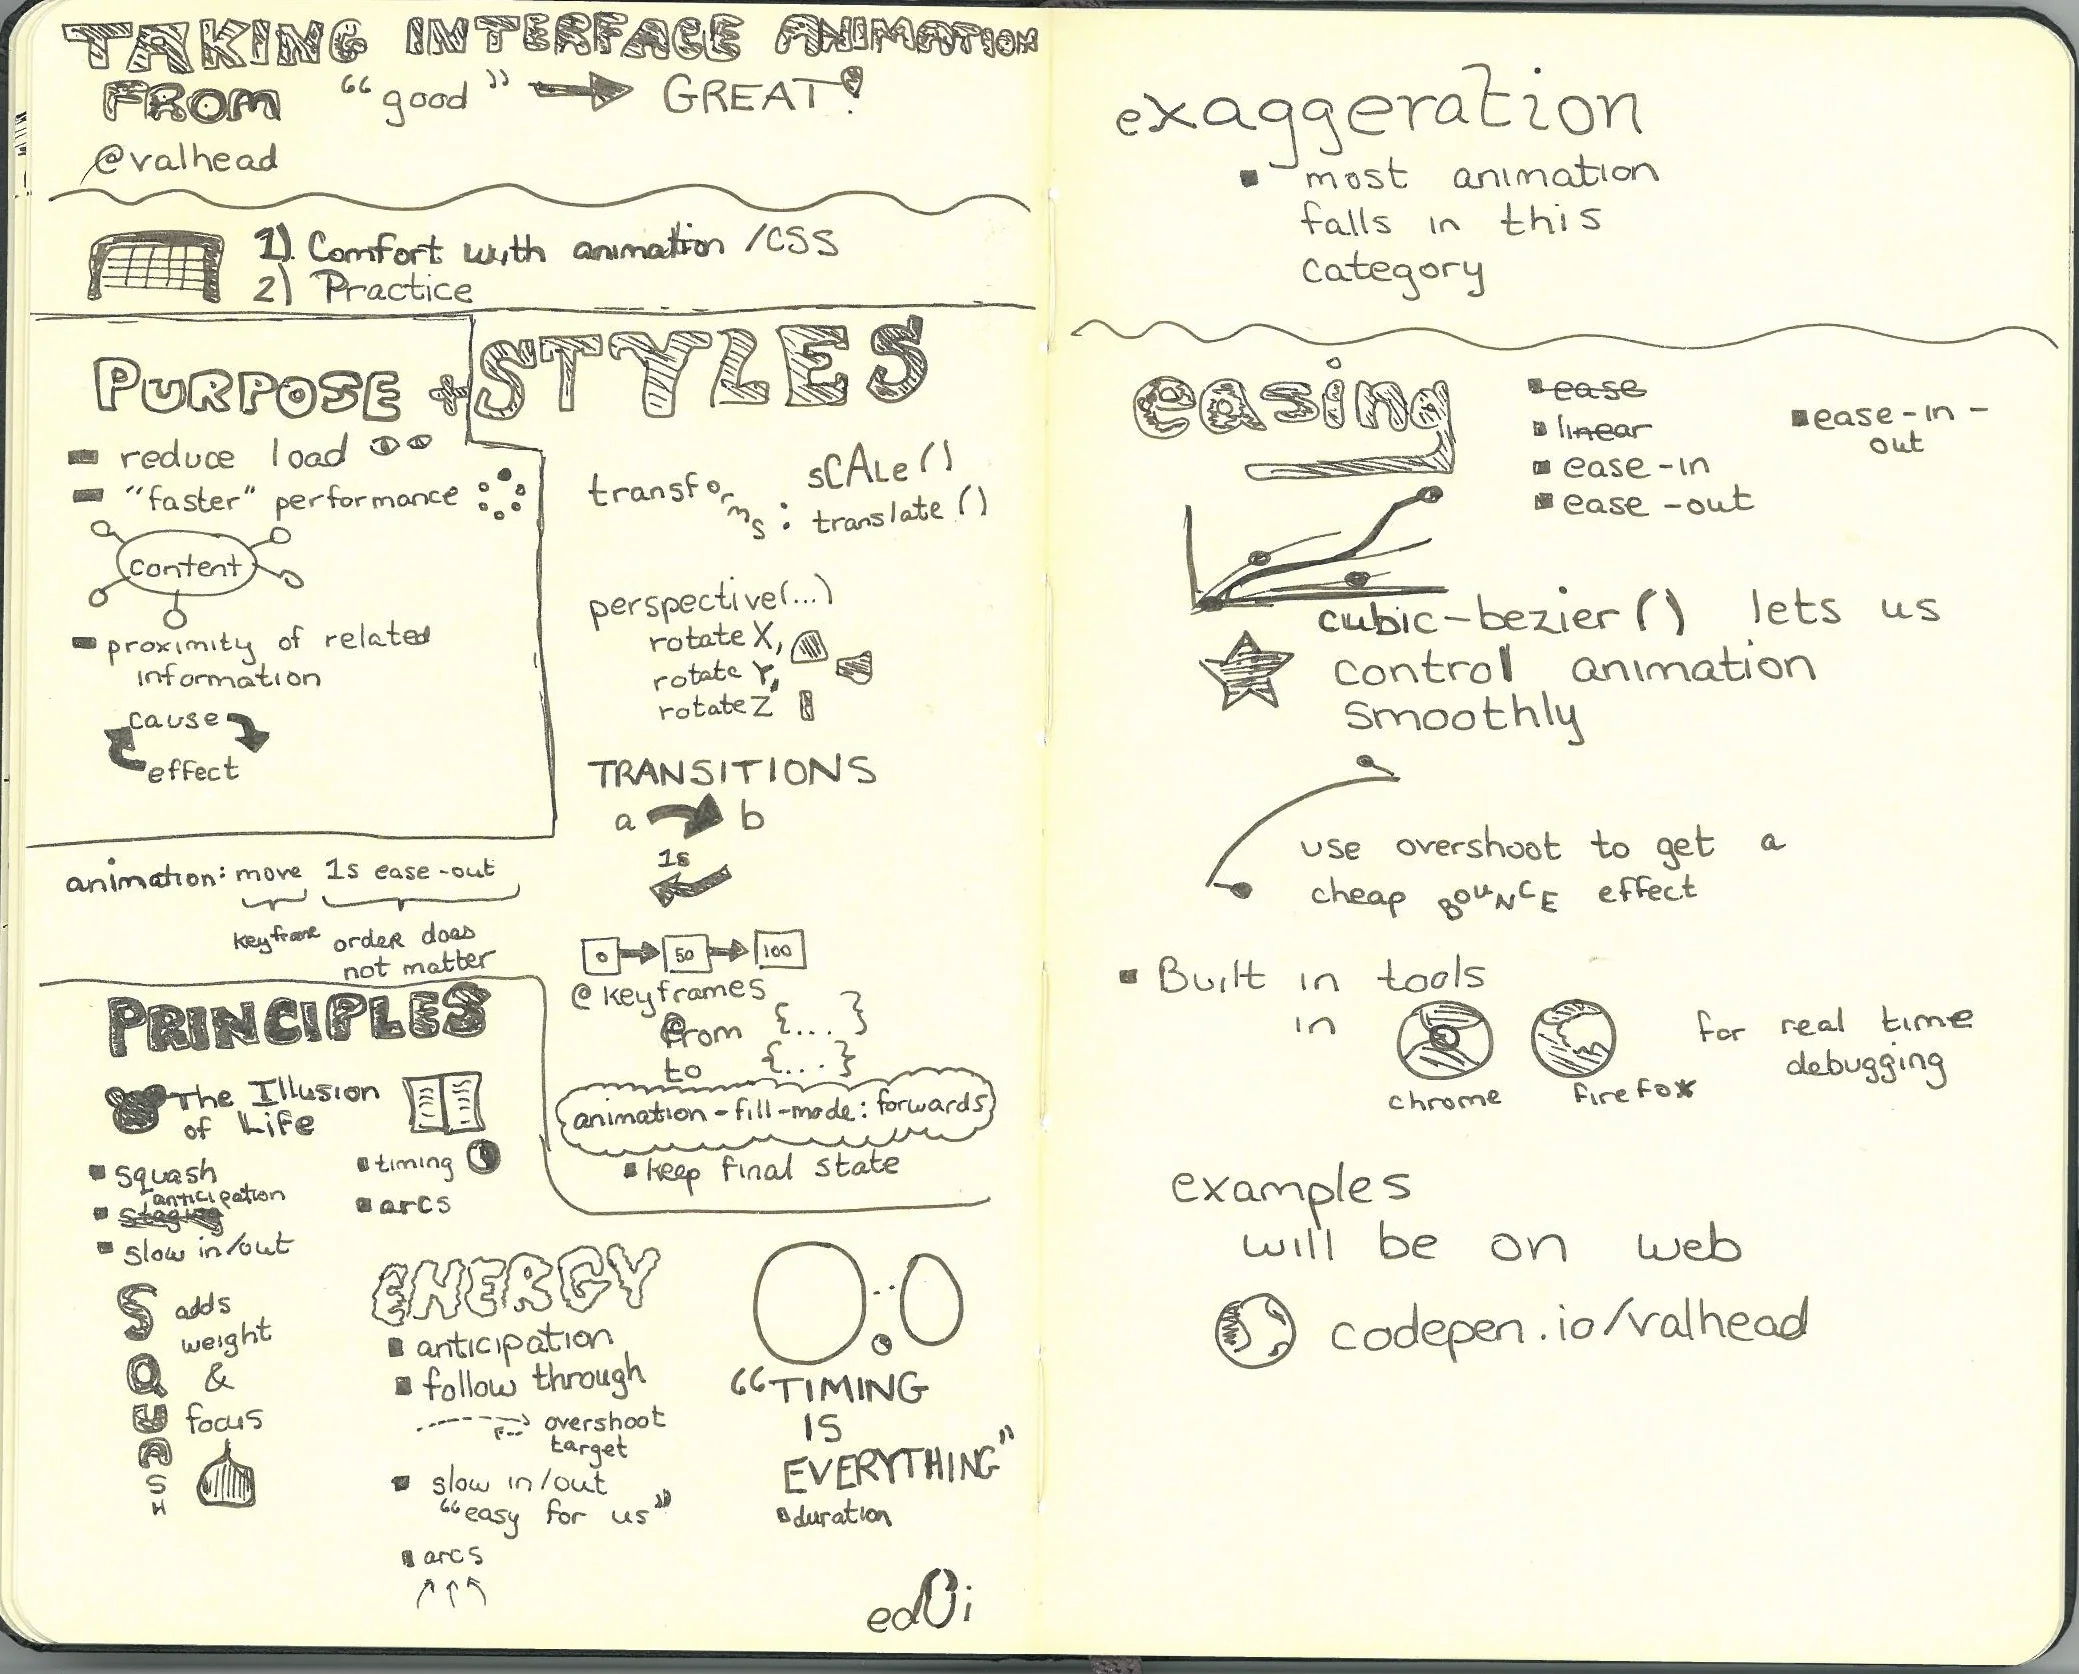 TAKING INTERFACE ANIMATION
FROM "good" → GREAT!
@valhead
1) Comfort with animation /CSS
2) Practice
PURPOSE + STYLES
reduce load
"faster" performance
content
proximity of related
information
cause
effect
transforms: scale()
translate()
perspective(...)
rotateX,
rotate Y,
rotateZ
TRANSITIONS
a b
1s
0 → 50 → 100
@keyframes
from {...}
to {...}
animation-fill-mode: forwards
keep final state
animation: move 1s ease-out
keyframe order does
not matter
PRINCIPLES
The Illusion
of Life
squash
anticipation
staging
slow in/out
timing
arcs
SQUASH
adds
weight
&
focus
ENERGY
anticipation
follow through
overshoot
target
slow in/out
"easy for us"
arcs
"TIMING
IS
EVERYTHING"
duration
edUi
exaggeration
most animation
falls in this
category
easing
ease
linear
ease-in
ease-out
ease-in-
out
cubic-bezier() lets us
control animation
smoothly
use overshoot to get a
cheap BOUNCE effect
Built in tools
in
chrome
firefox
for real time
debugging
examples
will be on web
codepen.io/valhead